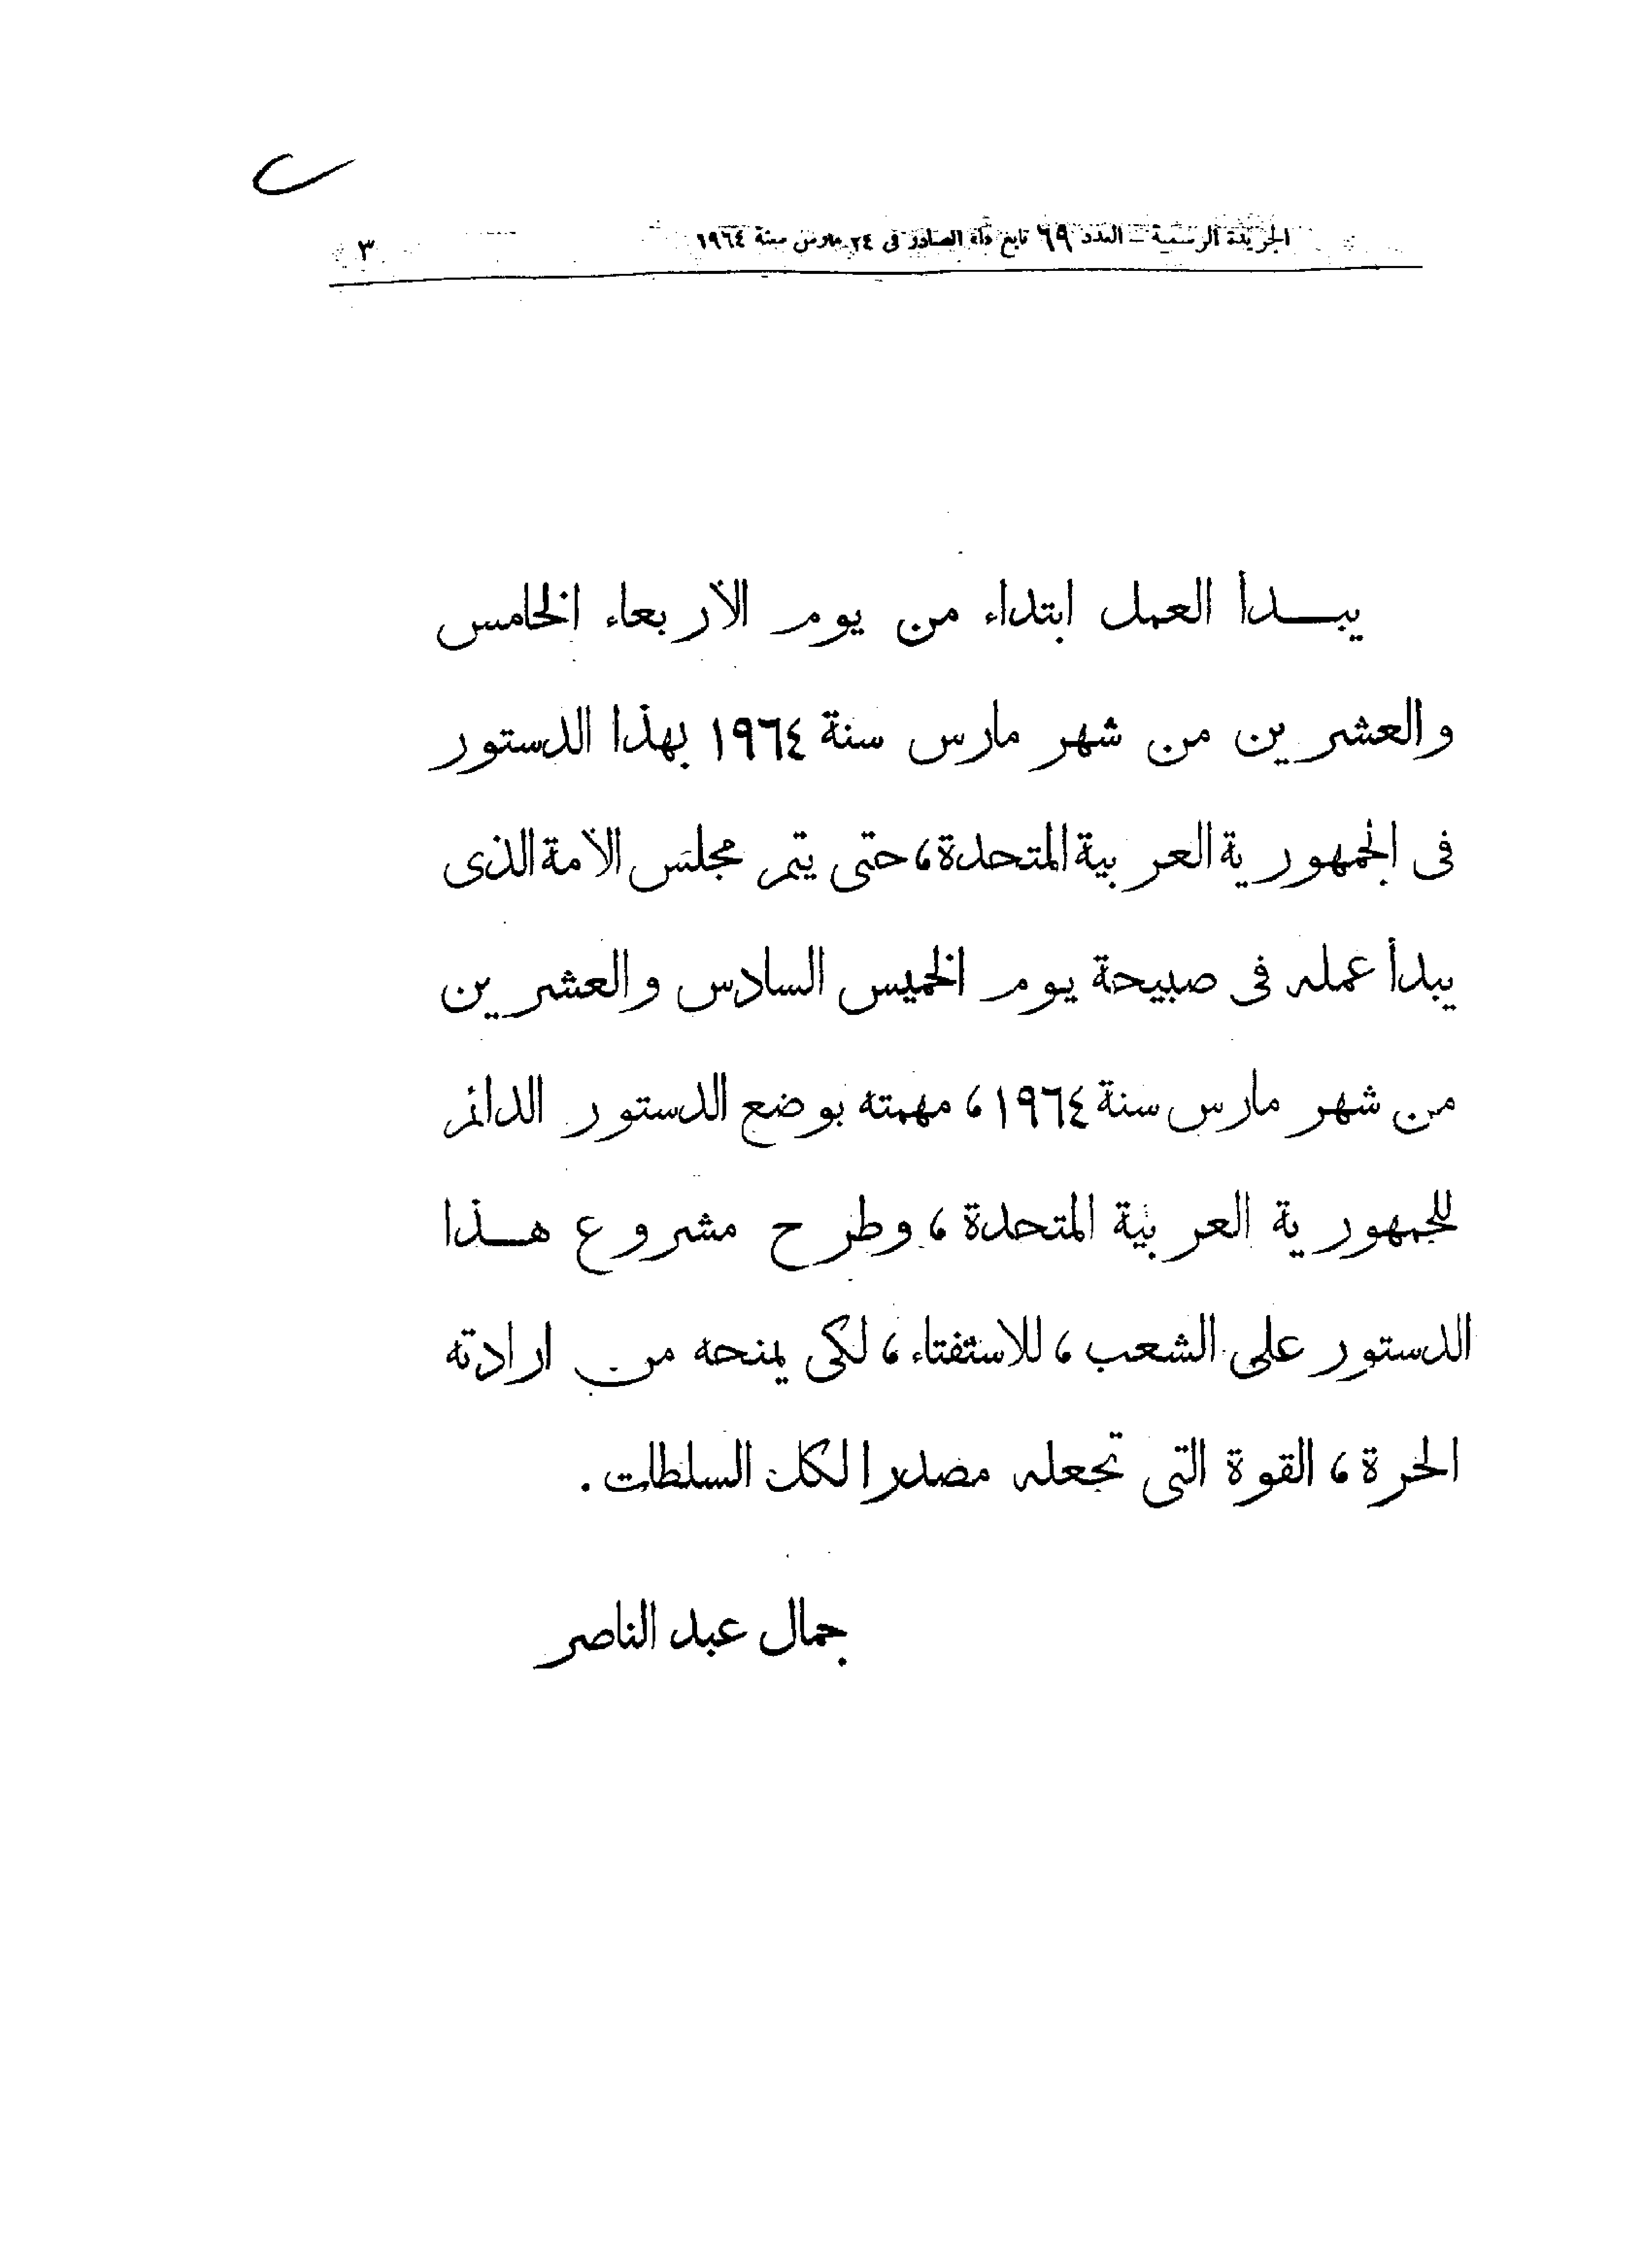 الجريدة الرسمية – العدد ٦٩ تابع «أ» الصادر فى ٢٤ مارس سنة ١٩٦٤
٣
يبـــدأ العمل ابتداء من يوم الأربعاء الخامس
والعشرين من شهر مارس سنة ١٩٦٤ بهذا الدستور
فى الجمهورية العربية المتحدة، حتى يتم مجلس الأمة الذى
يبدأ عمله فى صبيحة يوم الخميس السادس والعشرين
من شهر مارس سنة ١٩٦٤، مهمته بوضع الدستور الدائم
للجمهورية العربية المتحدة، وطرح مشروع هـــذا
الدستور على الشعب، للاستفتاء، لكى يمنحه من ارادته
الحرة، القوة التى تجعله مصدرا لكل السلطات.
جمال عبد الناصر